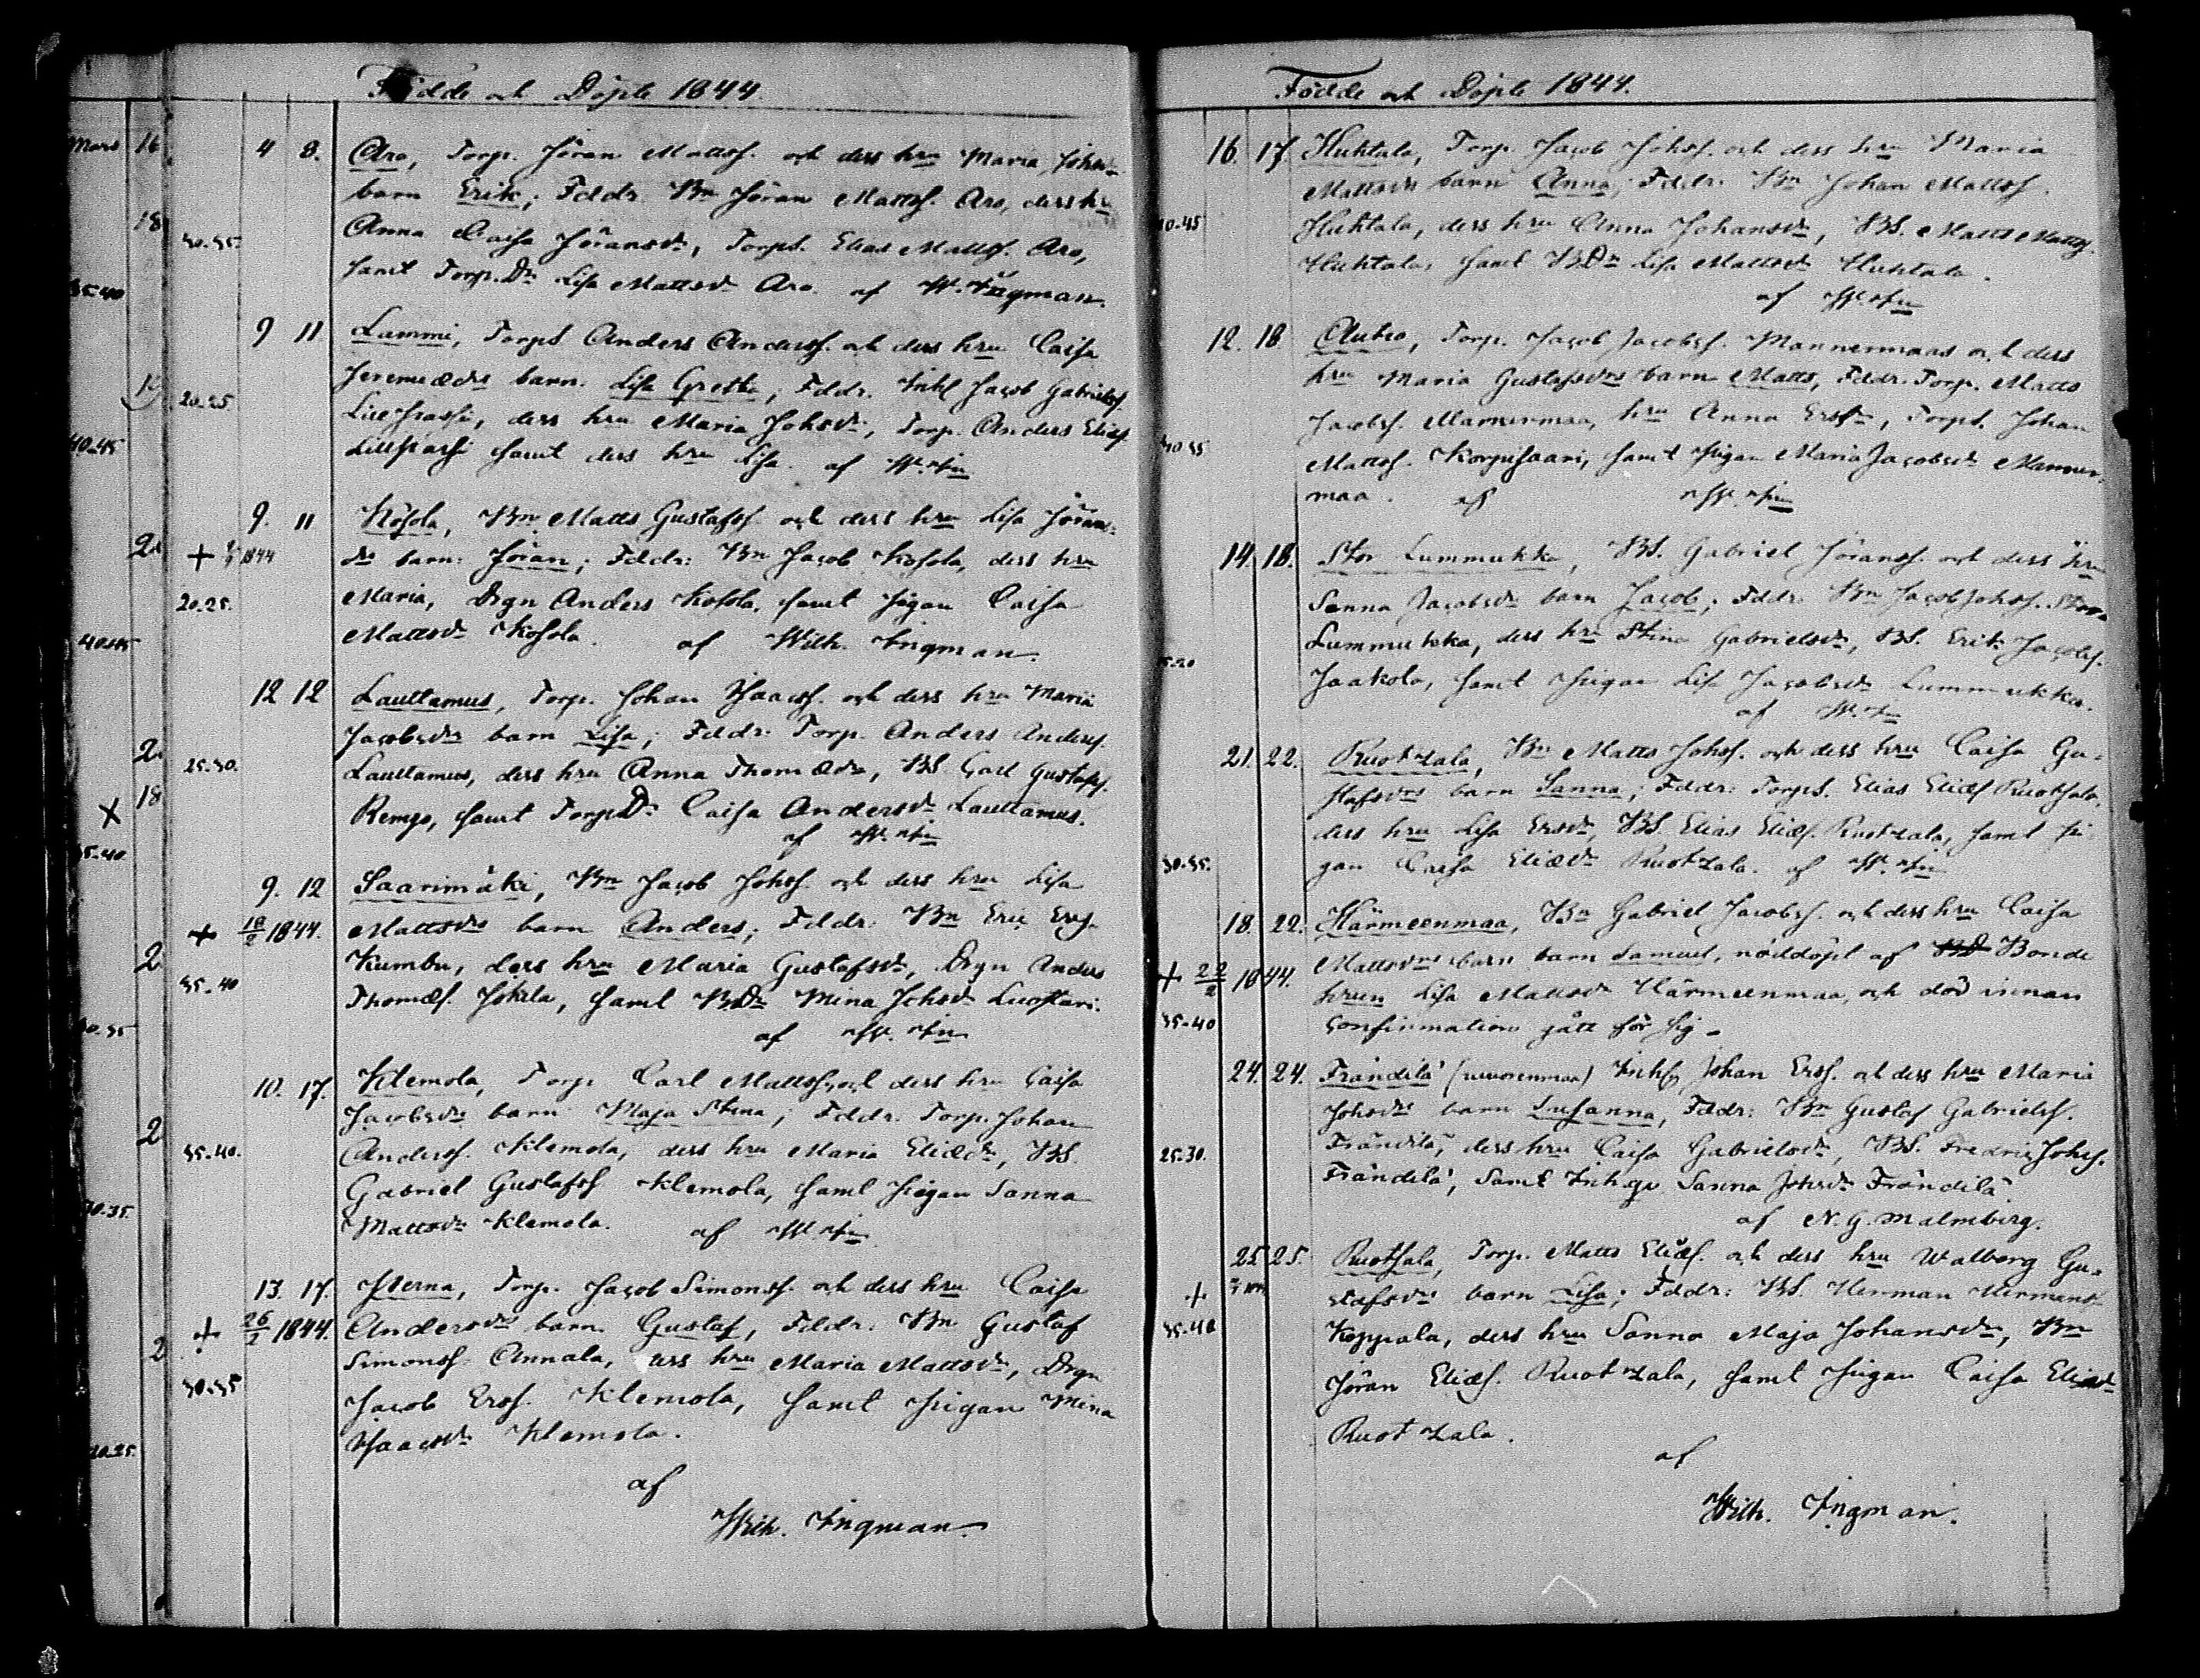 Födde och Döpte 1844.
Mars 16
4 8. Aro, Torp. Jöran Mattss. och dess hru Maria Johsd:
barn Erik; Fddr. Bn Jöran Mattss. Aro, dess hru
18
30-35. Anna Caisa Jöransdr, Torps. Elias Mattss. Aro,
35-40 samt Torp.Dr Lisa Mattsdr Aro. af W. Ingman.
9 11 Lammi, Torps Anders Anderss. och dess hru Caisa
20-25. Jeremiædrs barn Lisa Greta; Fddr. Inhs Jacob Gabrielss.
dess hru Maria Johsdr, Torp. Anders Eliæs.
40-45 samt dess hru Lisa. af W. In
9. 11 Kosola, Bn Matts Gustafss. och dess hru Lisa Jöran-
+ 1844 drs barn: Jöran; Fddr: Bn Jacob Kosola, dess hru
20-25. Maria, Drgn Anders Kosola, samt Pigan Caisa
40-45 Mattsdr Kosola. af Wilh. Ingman.
12 12 Lauttamus, Torp. Johan Isaacss. och dess hru Maria
Jacobsdrs barn Lisa; Fddr: Torp. Anders Anderss.
2
25-30. Lauttamus, dess hru Anna Thomædr, BS. Carl Gustafss.
18
× Rengo, samt Torp.Dr Caisa Andersdr Lauttamus.
35-40. af W. In
9. 12 Saarimäki, Bn Jacob Johss. och dess hru Lisa
+ 18/2 1844. Mattsdrs barn Anders; Fddr: Bn Eric Erss.
2 Kumbu, dess hru Maria Gustafsdr, Drgn Anders
35-40 Thomæs. Jokela, samt BDr Mina Johsdr Luostari.
af W. In
10. 17. Klemola, Torp. Carl Mattss. och dess hru Caisa
Jacobsdrs barn Maja Stina; Fddr. Torp. Johan
2
35-40. Anderss. Klemola, dess hru Maria Eliædr, BS.
Gabriel Gustafss Klemola, samt Pigan Sanna
30-35. Mattsdr Klemola. af W. In
13. 17. Isterna, Torp. Jacob Simonss. och dess hru Caisa
+ 26/2 1844. Andersdrs barn Gustaf, Fddr. Bn Gustaf
2 Simonss. Annala, dess hru Maria Mattsdr, Drgn
30-35 Jacob Erss. Klemola, samt Pigan Mina
20-25. Isaacsdr Klemola.
af
Wilh. Ingman.
Födde och Döpte 1844.
16. 17 Huhtala, Torp. Jacob Johss. och dess hru Maria
Mattsdrs barn Anna; Fddr: Bn Johan Mattss.
40-45 Huhtala, dess hru Anna Johansdr, BS. Matts Mattss.
Huhtala, samt BDr Lisa Mattsdr Huhtala.
af W. In
12. 18. Torp. Jacob Jacobss. Mannermaa och dess
hru Maria Gustafsdrs barn Matts, Fddr. Torp. Matts
Jacobss. Mannermaa, hru Anna Ersdr, Torps. Johan
30-35 Mattss. Korpisaari, samt Pigan Maria Jacobsdr Manner-
maa. af W. In
14. 18. Stor Lummukka, BS. Gabriel Jöranss. och dess hru
Sanna Jacobsdrs barn Jacob; Fddr. Bn Jacob Johss. Stor
Lummukka, dess hru Stina Gabrielsdr, BS. Erik Jacobss.
Jaakola, samt Pigan Lisa Jacobsdr Lummukka.
af W. In
21. 22. Ruotzala, Bn Matts Johss. och dess hru Caisa Gu-
stafsdrs barn Sanna; Fddr: Torps. Elias Eliæs Ruotsala,
dess hru Lisa Ersdr, BS. Elias Eliæs. Ruotzala, samt Pi
30-35. gan Caisa Eliædr Ruotzala. af W. In
18. 22. Härmeenmaa, Bn Gabriel Jacobss. och dess hru Caisa
+ 22/2 1844. Mattsdrs barn barn Samuel, nöddöpt af Bonde
hrun Lisa Mattsdr Härmeenmaa, och död innan
35-40 confirmation gått för sig.
24. 24. Frändilä (Wuorenmaa) Inhs Johan Erss. och dess hru Maria
Johsdrs barn Susanna, Fddr: Bn Gustaf Gabrielss.
25-30. Frändilä, dess hru Caisa Gabrielsdr, BS. Fredric Johss.
Frändilä, samt Inhge Sanna Johsdr Frändilä.
af N. G. Malmberg.
25 25. Ruotsala, Torp. Matts Eliæs. och dess hru Walborg Gu-
+ stafsdrs barn Lisa; Fddr: BS. Herman Hermans
35-40 Koppala, dess hru Sanna Maja Johansdr, Bn
Jöran Eliæs. Ruotzala, samt Pigan Caisa Eliædr
Ruotzala.
af
Wilh. Ingman.